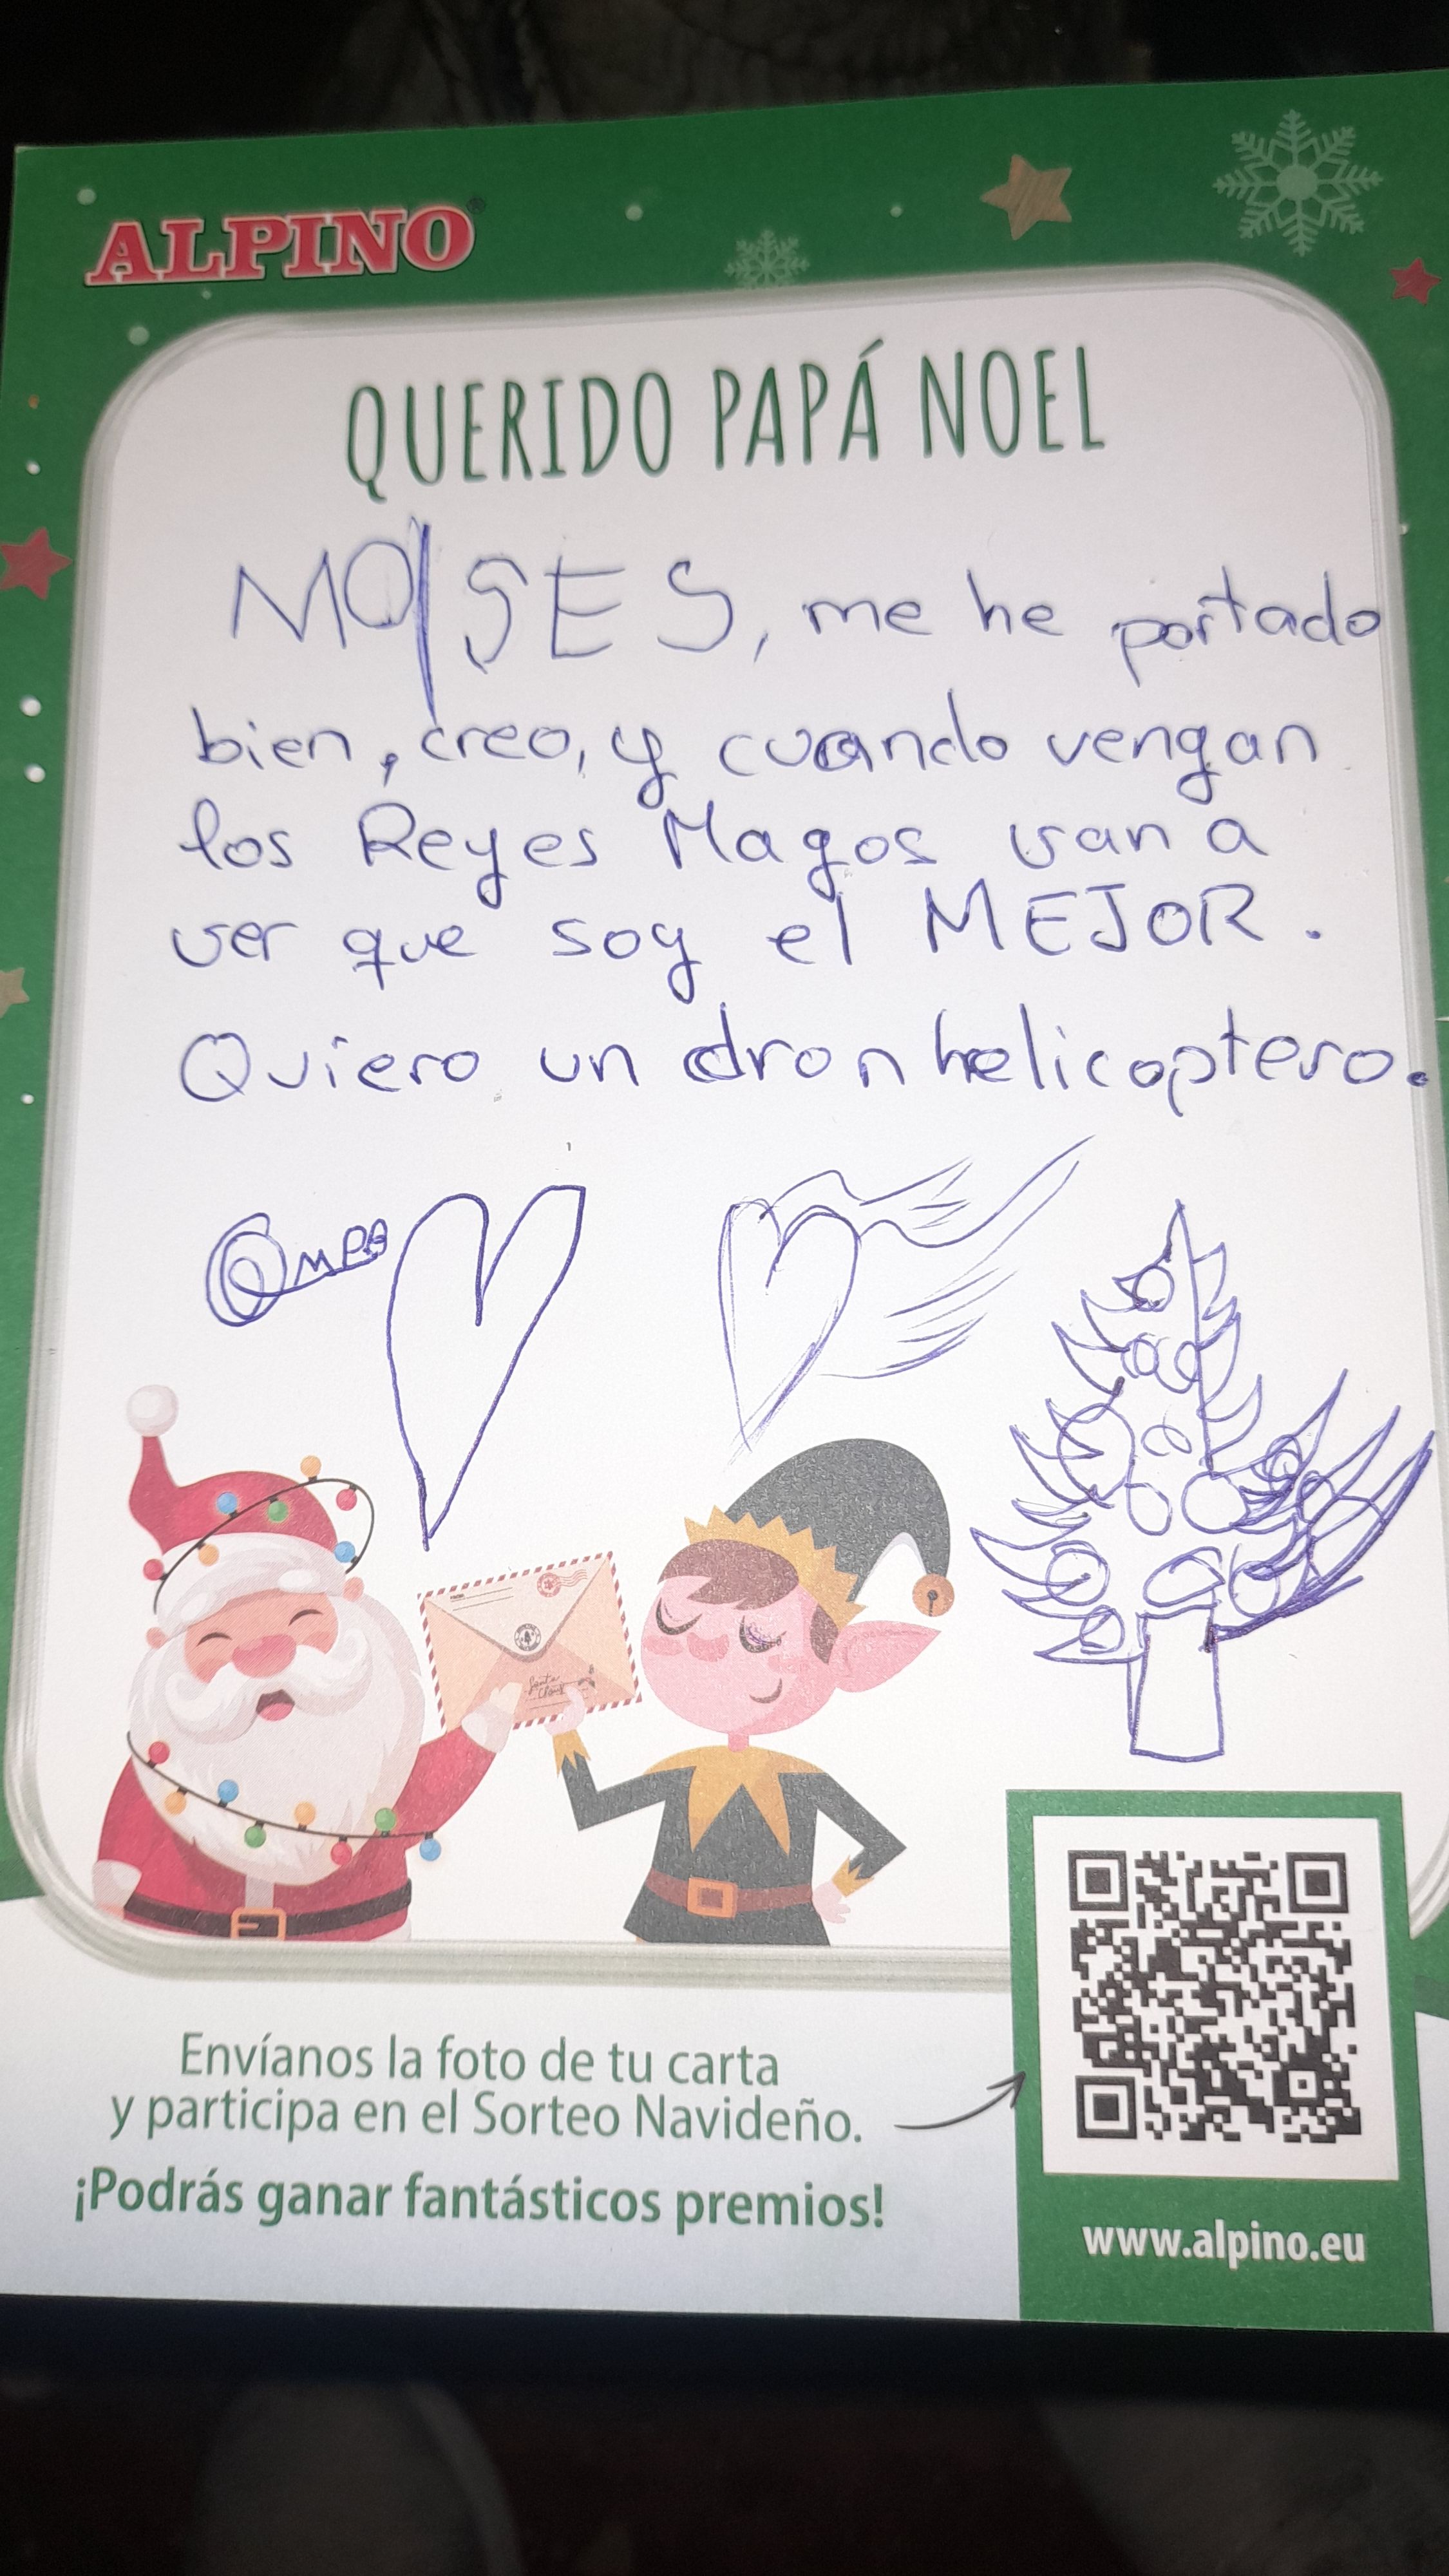 ALPINO®
QUERIDO PAPÁ NOEL
MOISES, me he portado
bien, creo, y cuando vengan
los Reyes Magos van a
ver que soy el MEJOR.
Quiero un dron helicoptero.
Santa
Claus
Envíanos la foto de tu carta
y participa en el Sorteo Navideño.
¡Podrás ganar fantásticos premios!
www.alpino.eu